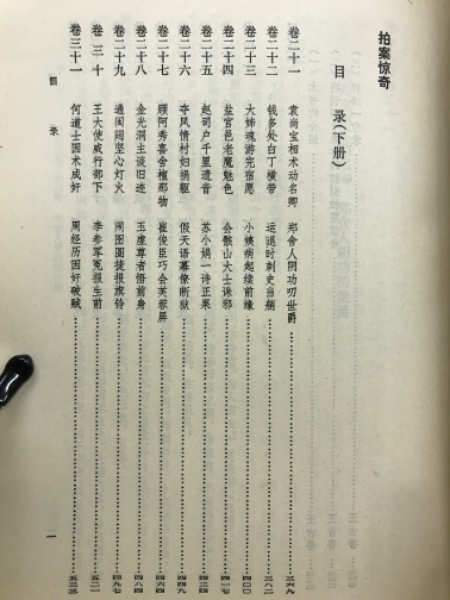 拍案惊奇
目 录(下册)
卷二十一 袁尚宝相术动名卿 郑舍人阴功叨世爵……三六九
卷二十二 钱多处白丁横带 运退时刺史当艄……三八二
卷二十三 大姊魂游完宿愿 小姨病起续前缘……四〇〇
卷二十四 盐官邑老魔魅色 会骸山大士诛邪……四一七
卷二十五 赵司户千里遗音 苏小娟一诗正果……四三四
卷二十六 夺风情村妇捐躯 假天语幕僚断狱……四四九
卷二十七 顾阿秀喜舍檀那物 崔俊臣巧会芙蓉屏……四六四
卷二十八 金光洞主谈旧迹 玉虚尊者悟前身……四八四
卷二十九 通闺闼坚心灯火 闹囹圄捷报旗铃……四九七
卷三十 王大使威行部下 李参军冤报生前……五二一
卷三十一 何道士因术成奸 周经历因奸破贼……五三三
目 录
一